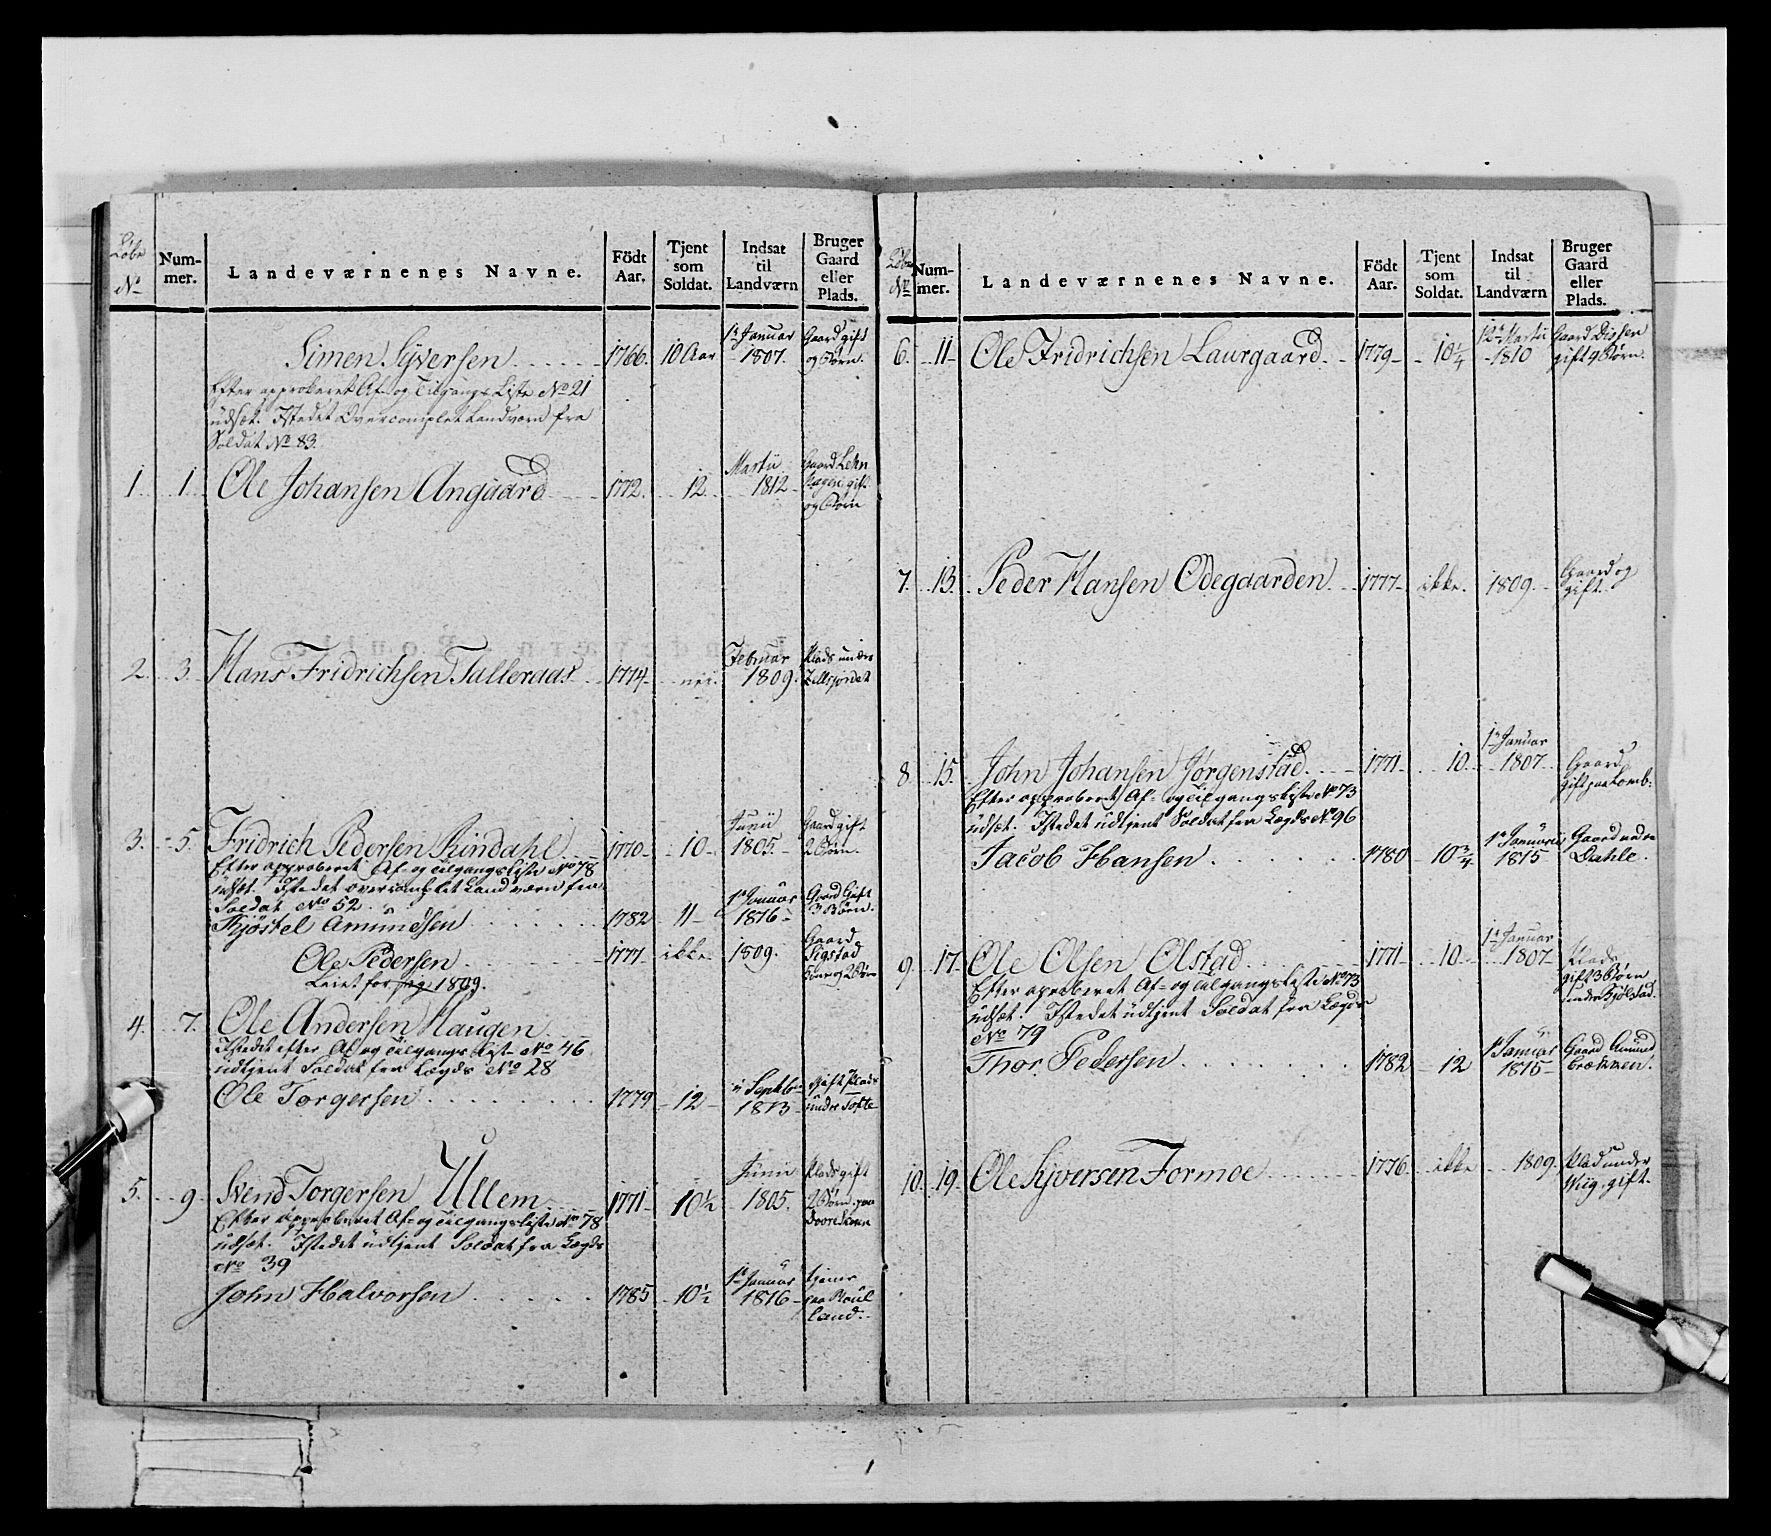 Løbe
No
Num-
mer.
Landeværnenes Navne.
Født
Aar.
Tjent
som
Soldat.
Indsat
til
Landværn
Bruger
Gaard
eller
Plads.
Simen Syversen 1766. 10 Aar 1te Januar 1807. Gaard gift og Børn.
Efter approberet Af- og Tilgangs Liste No 21
udsæt. Istedet Overcomplet Landværn fra
Soldat No 83.
1. 1. Ole Johansen Angaard 1772. 12. Martii 1812 Gaard gift og Børn
2. 3. Hans Fridrichsen Talleraas 1774 nei. Februar 1809. Plads under
3. 5. Fridrich Pedersen Rindahl 1770 10 Junii 1805. Gaard gift 2 Børn.
Efter approberet Af- og Tilgangsliste No 78
udsæt. Istedet overcomplet Landværn fra
Soldat No 52.
Kjøstel Amundsen 1782 11 1te Januar 1816 Gaard Gift 3 Børn.
Ole Pedersen 1777 ikke 1809. Gaard Sigstad
Leiet for 1809.
4. 7. Ole Andersen Haugen
Istedet efter Af og Tilgangs List No 46
udtjent Soldat fra Lægds No 28
Ole Torgersen 1779 12 Septbr 1813 Gift Plads under Tofte
5. 9. Svend Torgersen Ullem 1771 10½ Junii 1805. Plads gift 2 Børn. paa
Efter approberet Af- og Tilgangsliste No 78
udsæt. Istedet udtjent Soldat fra Lægds
No 39
John Halvorsen 1785 10½ 1te Januar 1816 tjener paa land.
Løbe
No
Num-
mer.
Landeværnenes Navne.
Født
Aar.
Tjent
som
Soldat.
Indsat
til
Landværn
Bruger
Gaard
eller
Plads.
6. 11 Ole Fridrichsen Laurgaard 1779 10¼ 12te Martii 1810 Gaard gift og Børn.
7. 13. Peder Hansen Ødegaarden 1777 ikke. 1809. Gaard og gift.
8. 15. John Johansen Jørgenstad 1771 10. 1te Januar 1807. Gaard Gift paa Lomb.
Efter approberet Af- og Tilgangsliste No 73
udsæt. Istedet udtjent Soldat fra Lægds No 96
Jacob Hansen 1780 10¾ 1te Januarii 1815 Gaard nedre Dahle.
9. 17. Ole Olsen Olstad 1771 10. 1te Januar 1807. Plads gift 3 Børn under Bjølstad.
Efter aproberet Af- og Tilgangsliste No 73
udsæt. Istedet udtjent Soldat fra Lægds
No 79
Thor Pedersen 1782 12 1te Januar 1815 Gaard Amund Brækken.
10. 19. Ole Syversen Formoe 1776. ikke 1809. Plads under Wiig. gift.